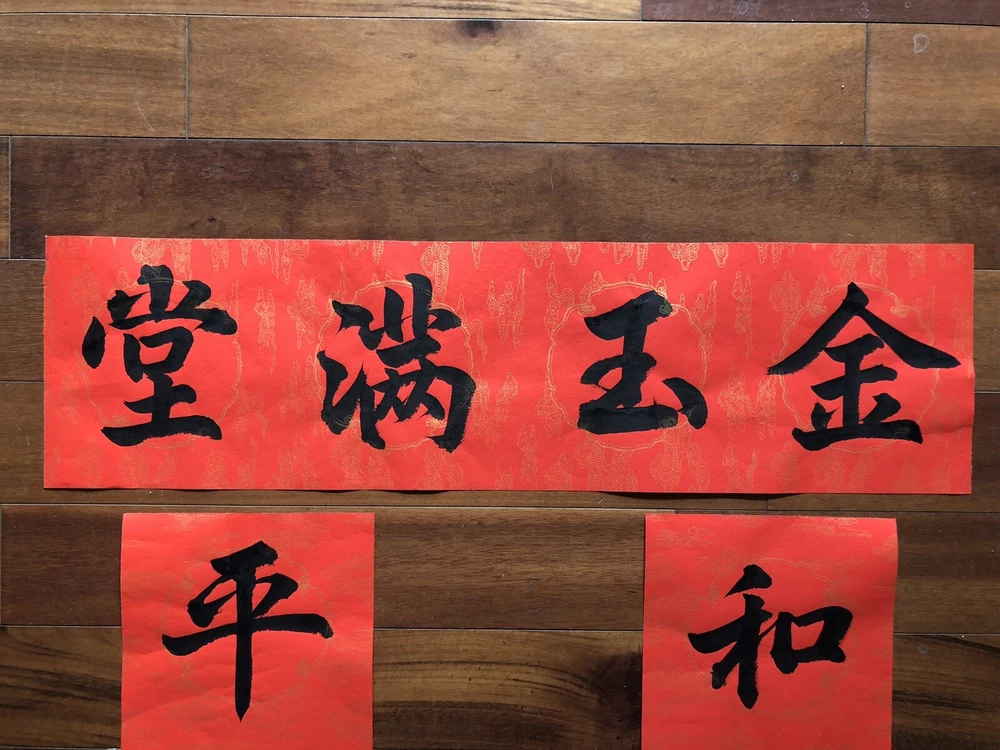 金玉满堂
和
平